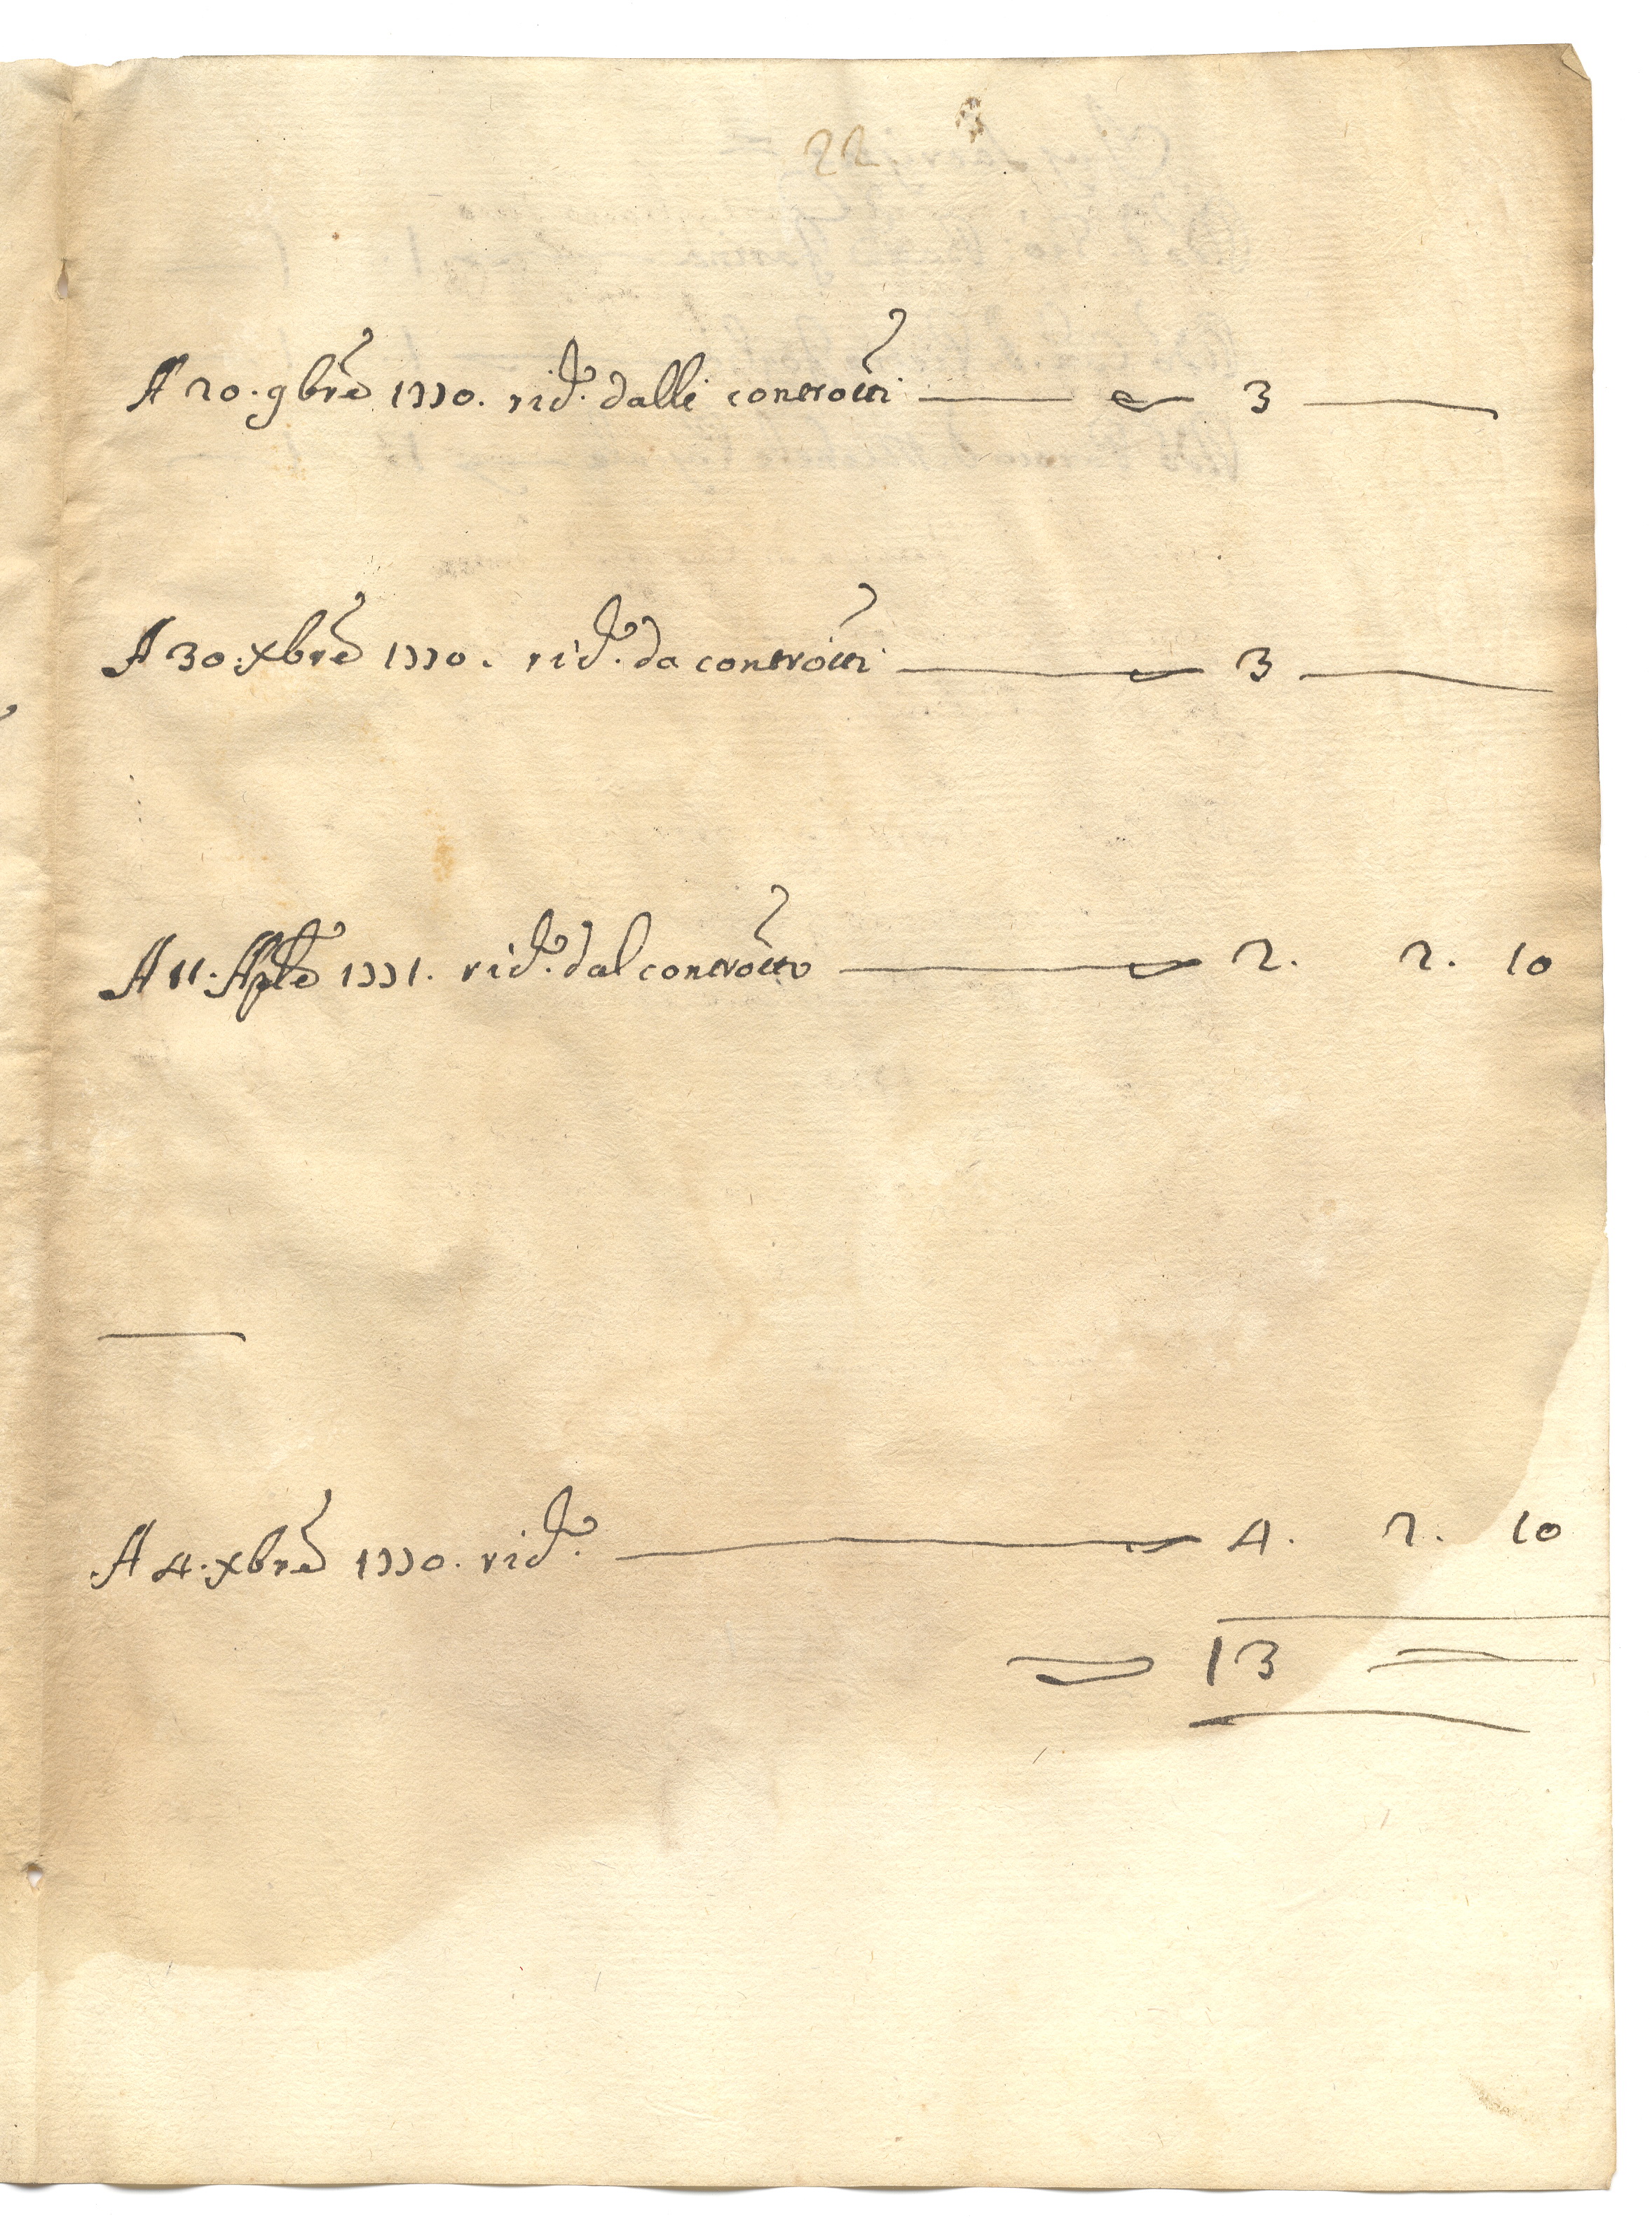 22
A 20. 9bre 1770. ric.to dalli controtti 3
A 30. Xbre 1770. ric.to da controtti 3
A 11. Aple 1771. ric.to dal controtto 2. 2. 10
A 4. Xbre 1770. ric.to 4. 2. 10
13